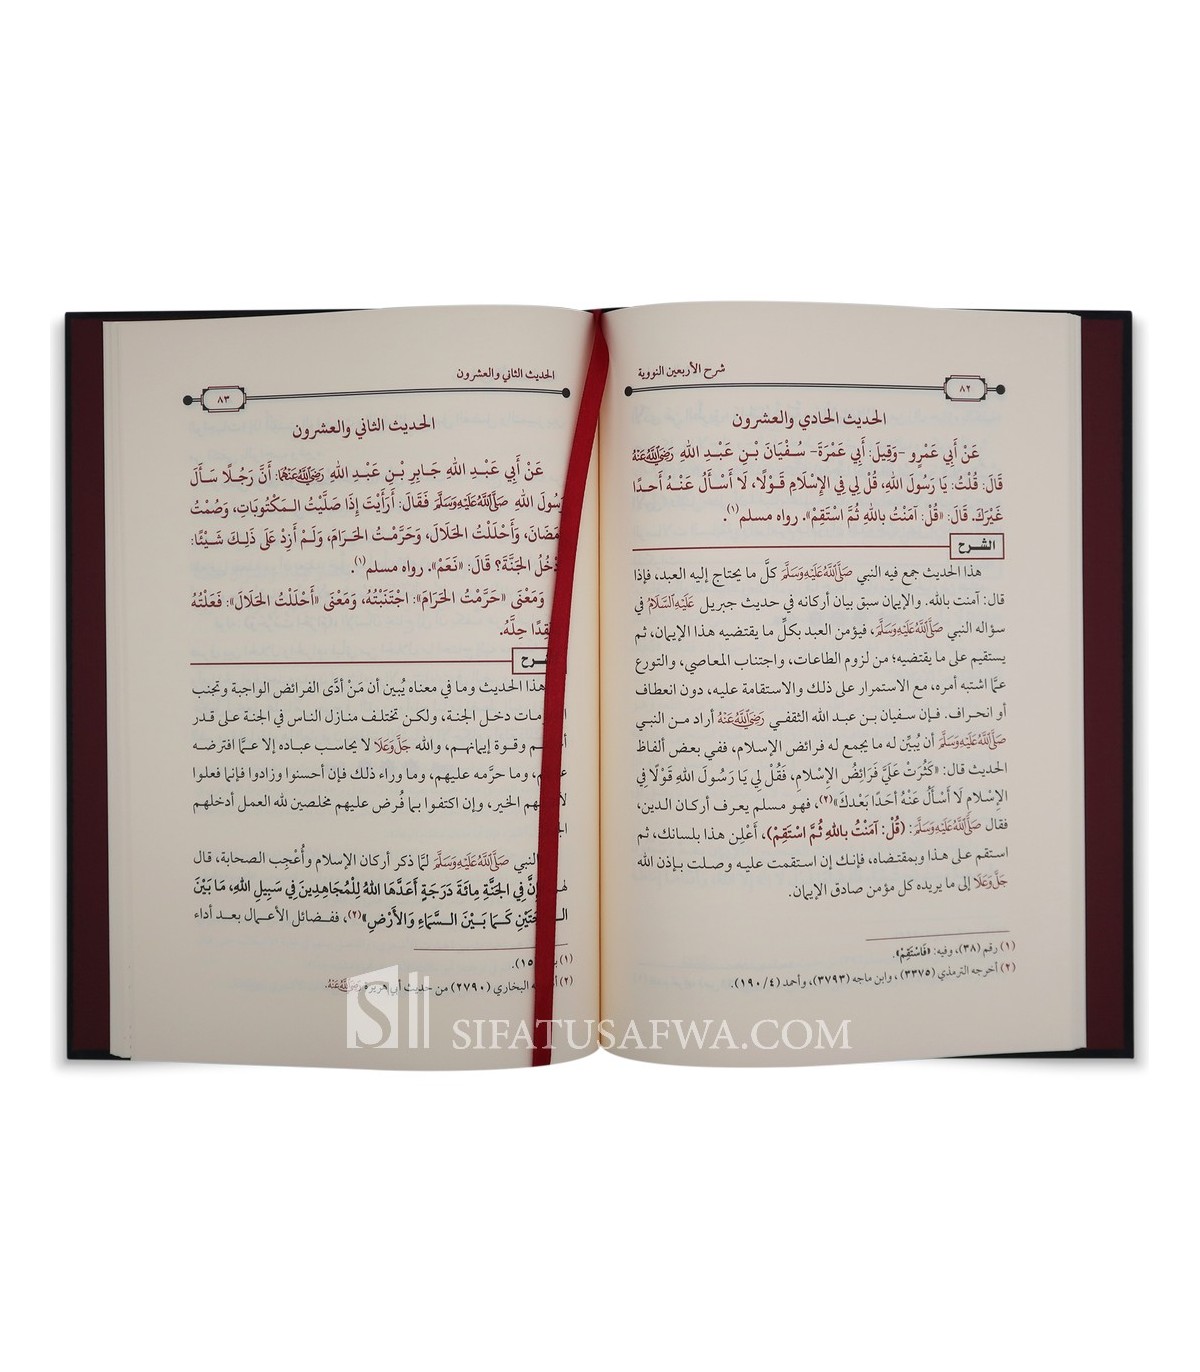 شرح الأربعين النووية
٨٢
الحديث الحادي والعشرون
عَنْ أَبِي عَمْرٍو -وَقِيلَ: أَبِي عَمْرَةَ- سُفْيَانَ بْنِ عَبْدِ اللهِ رَضِيَاللَّهُعَنْهُ
قَالَ: قُلْتُ: يَا رَسُولَ اللهِ، قُلْ لِي فِي الإِسْلَامِ قَوْلًا، لَا أَسْأَلُ عَنْهُ أَحَدًا
غَيْرَكَ. قَالَ: «قُلْ: آمَنْتُ بِاللهِ ثُمَّ اسْتَقِمْ». رواه مسلم(١).
الشرح
هذا الحديث جمع فيه النبي صَلَّىاللَّهُعَلَيْهِوَسَلَّمَ كلَّ ما يحتاج إليه العبد، فإذا
قال: آمنت بالله. والإيمان سبق بيان أركانه في حديث جبريل عَلَيْهِالسَّلَامُ في
سؤاله النبي صَلَّىاللَّهُعَلَيْهِوَسَلَّمَ، فيؤمن العبد بكلِّ ما يقتضيه هذا الإيمان، ثم
يستقيم على ما يقتضيه؛ من لزوم الطاعات، واجتناب المعاصي، والتورع
عمَّا اشتبه أمره، مع الاستمرار على ذلك والاستقامة عليه، دون انعطاف
أو انحراف. فإن سفيان بن عبد الله الثقفي رَضِيَاللَّهُعَنْهُ أراد من النبي
صَلَّىاللَّهُعَلَيْهِوَسَلَّمَ أن يُبيِّن له ما يجمع له فرائض الإسلام، ففي بعض ألفاظ
الحديث قال: «كَثُرَتْ عَلَيَّ فَرَائِضُ الإِسْلَامِ، فَقُلْ لِي يَا رَسُولَ اللهِ قَوْلًا فِي
الإِسْلَامِ لَا أَسْأَلُ عَنْهُ أَحَدًا بَعْدَكَ»(٢)، فهو مسلم يعرف أركان الدين،
فقال صَلَّىاللَّهُعَلَيْهِوَسَلَّمَ: (قُلْ: آمَنْتُ بِاللهِ ثُمَّ اسْتَقِمْ)، أَعْلِن هذا بلسانك، ثم
استقم على هذا وبمقتضاه، فإنك إن استقمت عليه وصلت بإذن الله
جَلَّوَعَلَا إلى ما يريده كل مؤمن صادق الإيمان.
(١) رقم (٣٨)، وفيه: «فَاسْتَقِمْ».
(٢) أخرجه الترمذي (٣٣٧٥)، وابن ماجه (٣٧٩٣)، وأحمد (٤/ ١٩٠).
الحديث الثاني والعشرون
٨٣
الحديث الثاني والعشرون
عَنْ أَبِي عَبْدِ اللهِ جَابِرِ بْنِ عَبْدِ اللهِ رَضِيَاللَّهُعَنْهُمَا: أَنَّ رَجُلًا سَأَلَ
رَسُولَ اللهِ صَلَّىاللَّهُعَلَيْهِوَسَلَّمَ فَقَالَ: أَرَأَيْتَ إِذَا صَلَّيْتُ المَكْتُوبَاتِ، وَصُمْتُ
وَأَحْلَلْتُ الحَلَالَ، وَحَرَّمْتُ الحَرَامَ، وَلَمْ أَزِدْ عَلَى ذَلِكَ شَيْئًا؛
الجَنَّةَ؟ قَالَ: «نَعَمْ». رواه مسلم(١).
وَمَعْنَى «حَرَّمْتُ الحَرَامَ»: اجْتَنَبْتُهُ، وَمَعْنَى «أَحْلَلْتُ الحَلَالَ»: فَعَلْتُهُ
حِلَّهُ.
هذا الحديث وما في معناه يُبين أن مَنْ أدَّى الفرائض الواجبة وتجنب
دخل الجنة، ولكن تختلف منازل الناس في الجنة على قدر
وقوة إيمانهم، والله جَلَّوَعَلَا لا يحاسب عباده إلا عمَّا افترضه
وما حرَّمه عليهم، وما وراء ذلك فإن أحسنوا وزادوا فإنما فعلوا
الخير، وإن اكتفوا بما فُرض عليهم مخلصين لله العمل أدخلهم
النبي صَلَّىاللَّهُعَلَيْهِوَسَلَّمَ لمَّا ذكر أركان الإسلام وأُعْجِب الصحابة، قال
فِي الجَنَّةِ مِائَةَ دَرَجَةٍ أَعَدَّهَا اللهُ لِلْمُجَاهِدِينَ فِي سَبِيلِ اللهِ، مَا بَيْنَ
كَمَا بَيْنَ السَّمَاءِ وَالأَرْضِ»(٢)، ففضائل الأعمال بعد أداء
(١)
(٢) البخاري (٢٧٩٠) من حديث أبي هريرة رَضِيَاللَّهُعَنْهُ.
SIFATUSAFWA.COM